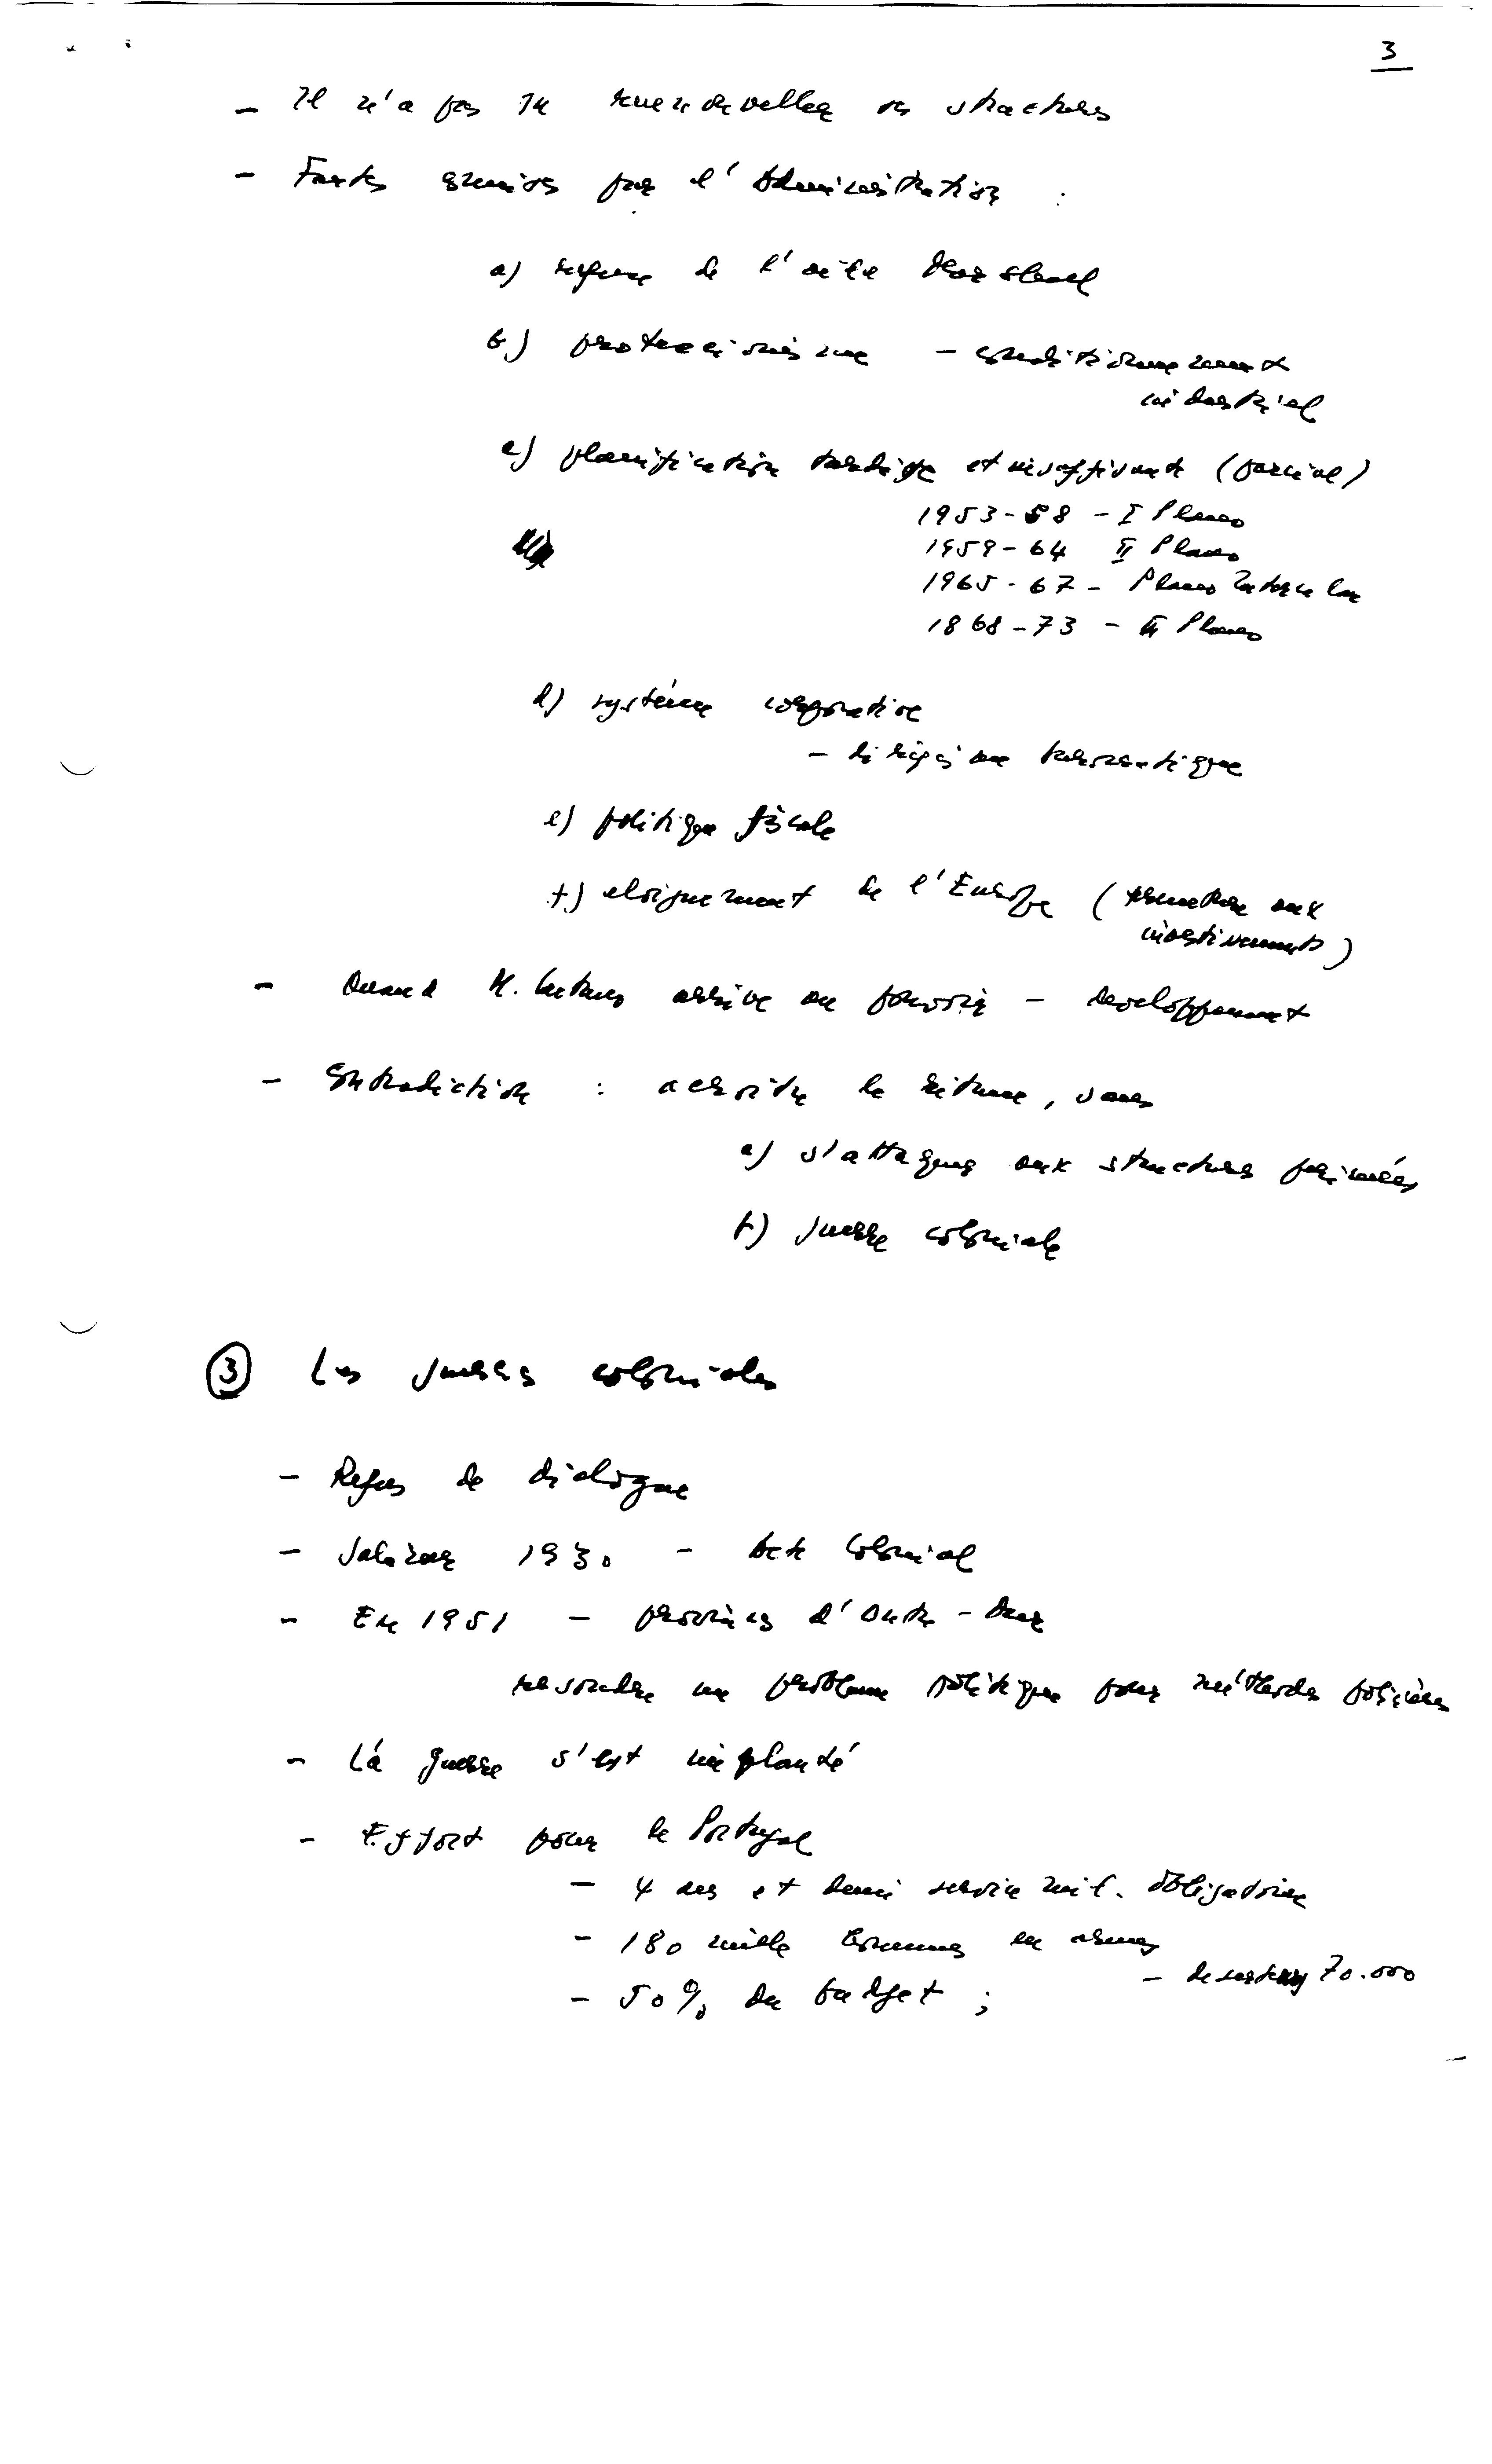 3
- Il n'a pas su renouveller ses structures
- Fautes commises par l'Administration :
a) refuse de l'aide Marshall
b) protecionisme - conditionnement
industriel
c) planification tardive et insuffisante (parcial)
1953-58 - I Plano
1959-64 II Plano
1965-67 - Plano Intercalar
1868-73 - III Plano
d) système corporative
- dirigisme
e) politique fiscale
f) eloignement de l'Europe ( aux
investissements)
- Quand M. Caetano arrive au pouvoir - developpement
- Contradiction : acroitre le ritme, sans
a) s'attaquer aux structures perimées
b) guerre coloniale
3 Les guerres coloniales
- Refus de dialogue
- Salazar 1930 - Acte Colonial
- En 1951 - provinces d'Outre-Mer
resoudre un probleme politique par méthodes policières
- Lá guerre s'est implanté
- Effort pour le Portugal
- 4 ans et demi service mil. obligatoire
- 180 mille hommes en armes
- deserteurs 70.000
- 50% du budget ;